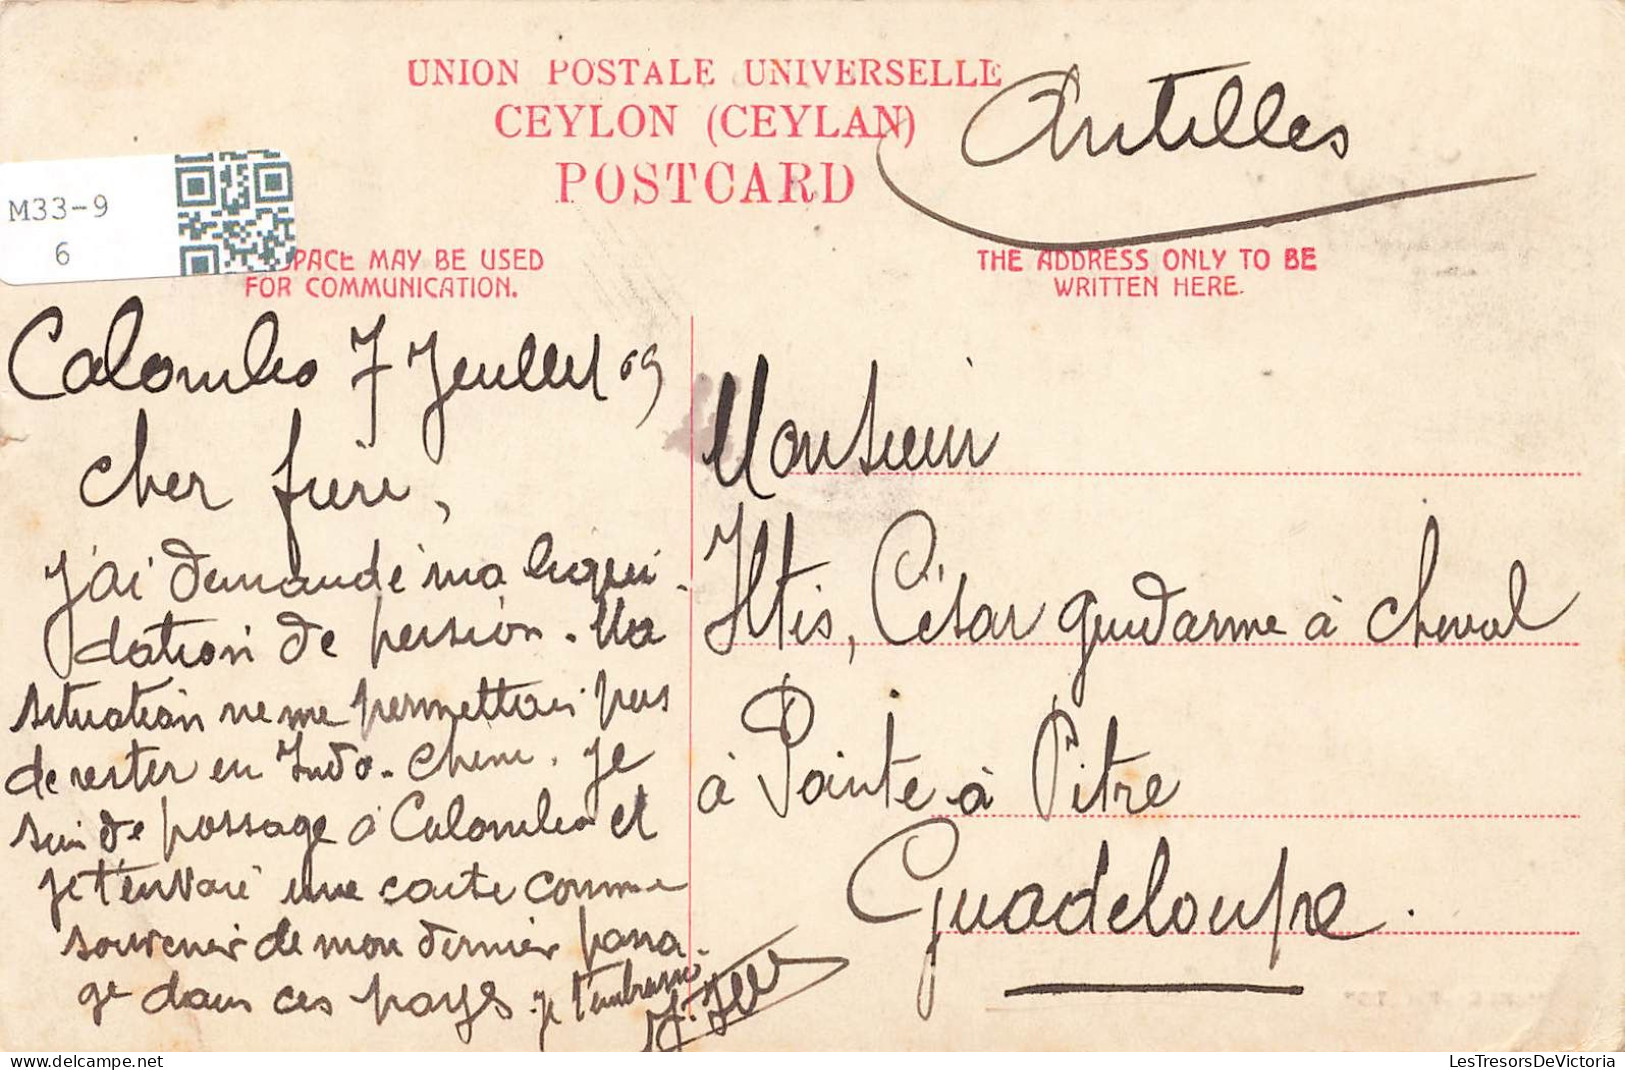 UNION POSTALE UNIVERSELLE
CEYLON (CEYLAN)
POSTCARD
Antilles
M33-9
6
SPACE MAY BE USED
FOR COMMUNICATION.
THE ADDRESS ONLY TO BE
WRITTEN HERE.
Colombo 7 Juillet 09
Cher frère,
j'ai demandé ma liqui-
dation de pension. Ma
situation ne me permettais pas
de rester en Indo-Chine. Je
suis de passage à Colombo et
je t'envoie une carte comme
souvenir de mon dernier passa-
ge dans ces pays. je t'embrasse
Monsieur
Iltis, César gendarme à cheval
à Pointe à Pitre
Guadeloupe.
LesTresorsDeVictoria